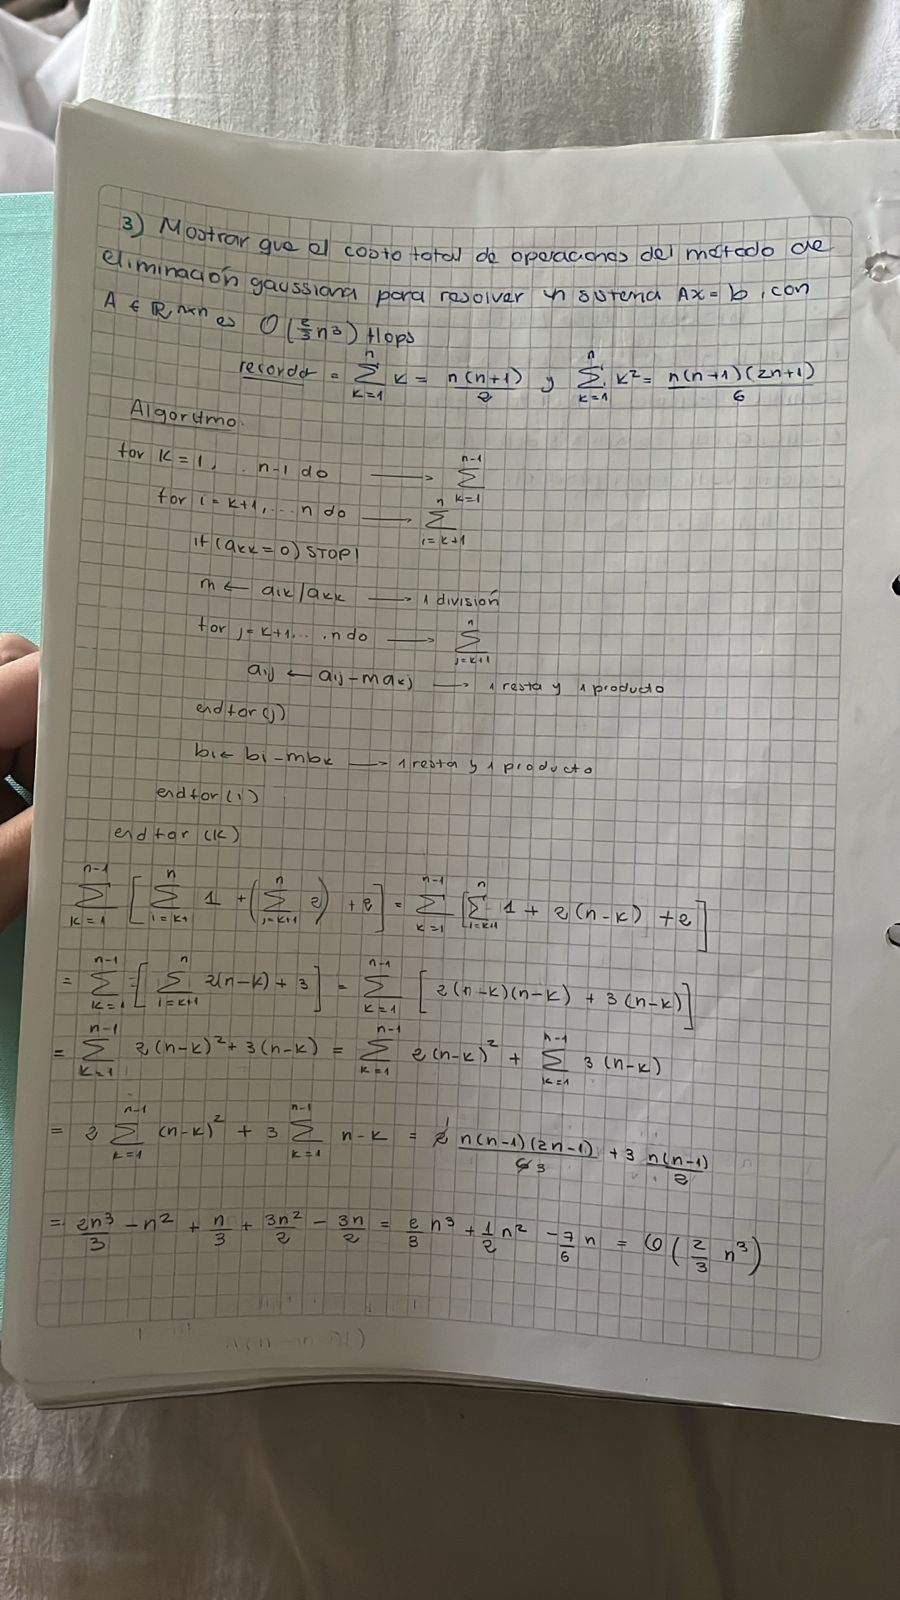 3) Mostrar que el costo total de operaciones del método de
eliminación gaussiana para resolver un sistema Ax = b, con
A ∈ ℝnxn es O(2/3 n³) flops
recordar = ∑_{k=1}^{n} k = n(n+1)/2 y ∑_{k=1}^{n} k² = n(n+1)(2n+1)/6
Algoritmo.
for k=1, .. n-1 do → ∑_{k=1}^{n-1}
for i=k+1,...n do → ∑_{i=k+1}^{n}
if (akk=0) STOP!
m ← aik/akk → 1 división
for j=k+1,...n do → ∑_{j=k+1}^{n}
aij ← aij-makj → 1 resta y 1 producto
endfor(j)
bi ← bi-mbk → 1 resta y 1 producto
endfor(i)
endfor (k)
∑_{k=1}^{n-1} [∑_{i=k+1}^{n} 1 + (∑_{j=k+1}^{n} 2) + 2] = ∑_{k=1}^{n-1} [∑_{i=k+1}^{n} 1 + 2(n-k) + 2]
= ∑_{k=1}^{n-1} [∑_{i=k+1}^{n} 2(n-k) + 3] = ∑_{k=1}^{n-1} [2(n-k)(n-k) + 3(n-k)]
= ∑_{k=1}^{n-1} 2(n-k)² + 3(n-k) = ∑_{k=1}^{n-1} 2(n-k)² + ∑_{k=1}^{n-1} 3(n-k)
= 2 ∑_{k=1}^{n-1} (n-k)² + 3 ∑_{k=1}^{n-1} n-k = 2 1 n(n-1)(2n-1)/6 3 + 3 n(n-1)/2
= 2n³/3 - n² + n/3 + 3n²/2 - 3n/2 = 2/3 n³ + 1/2 n² - 7/6 n = O(2/3 n³)